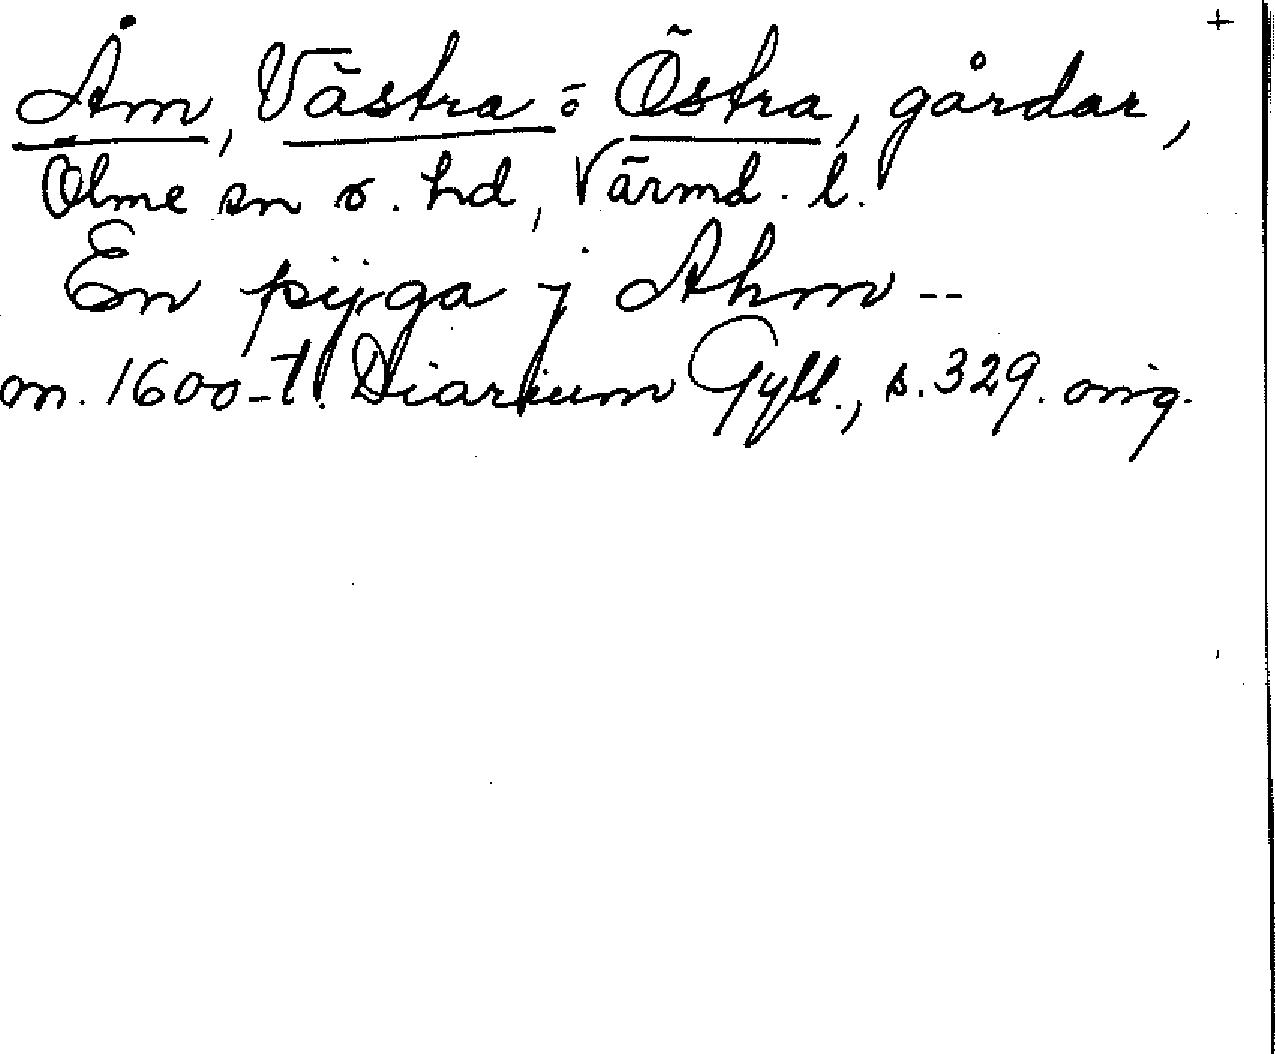 +
Åm, Västra o Östra, gårdar,
Ölme sn o. hd, Värml. l.
En pÿga j Ahm --
m. 1600-t. Diarium Gyll., s. 329. orig.